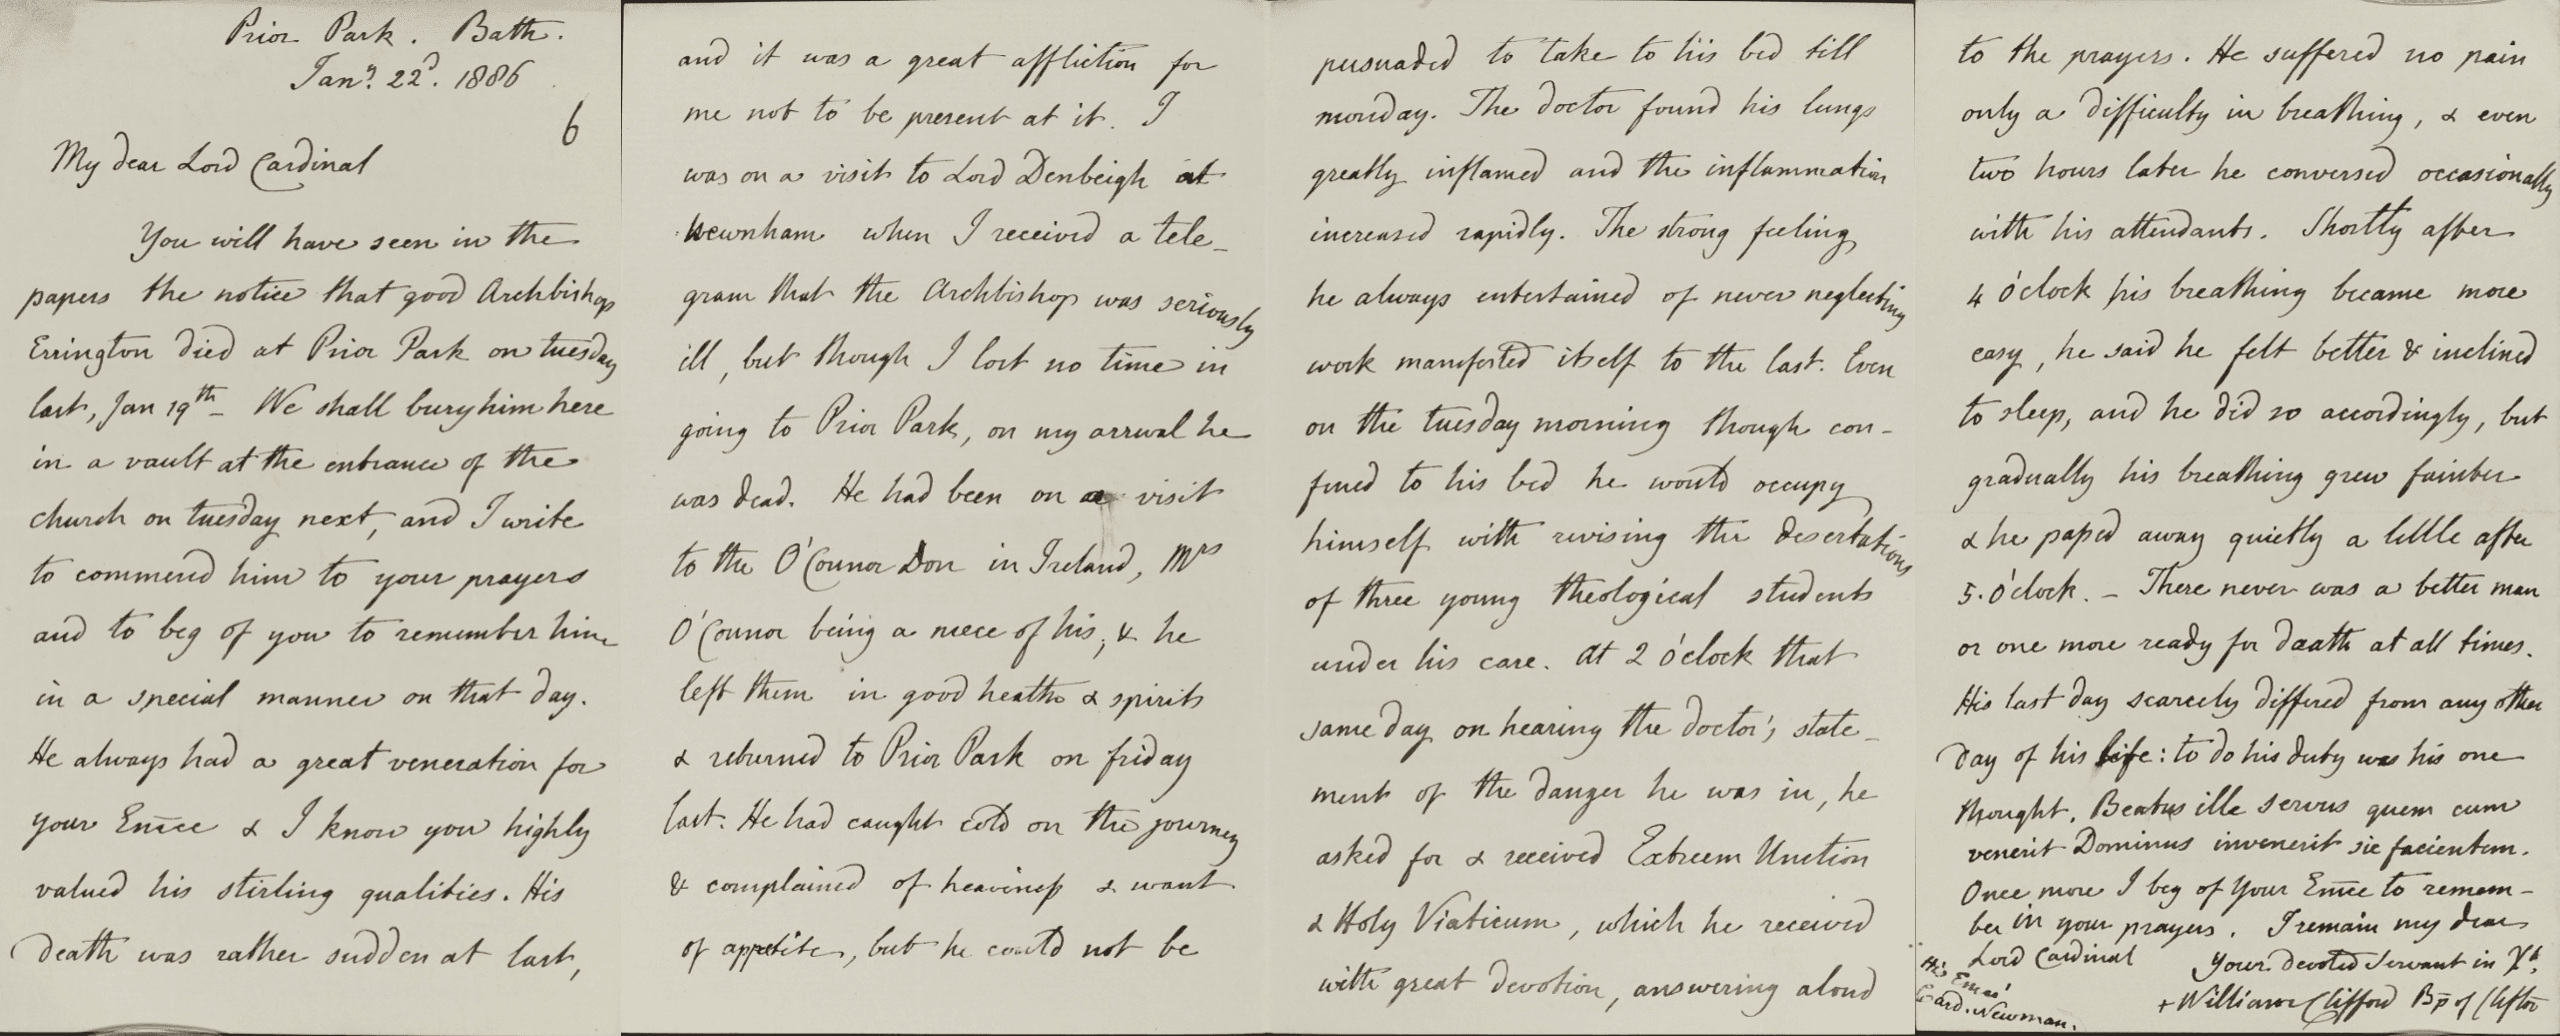 Prior Park. Bath.
Jany. 22d. 1886
6
My dear Lord Cardinal
You will have seen in the
papers the notice that good Archbishop
Errington died at Prior Park on tuesday
last, Jan 19th _ We shall bury him here
in a vault at the entrance of the
church on tuesday next, and I write
to commend him to your prayers
and to beg of you to remember him
in a special manner on that day.
He always had a great veneration for
your Emce & I know you highly
valued his stirling qualities. His
death was rather sudden at last,
and it was a great affliction for
me not to be present at it. I
was on a visit to Lord Denbeigh at
Newnham when I received a tele_
gram that the Archbishop was seriously
ill, but though I lost no time in
going to Prior Park, on my arrival he
was dead. He had been on a visit
to the O'Connor Don in Ireland, Mrs
O'Connor being a niece of his, & he
left them in good health & spirits
& returned to Prior Park on friday
last. He had caught cold on the journey
& complained of heaviness & want
of appetite, but he could not be
persuaded to take to his bed till
monday. The doctor found his lungs
greatly inflamed and the inflammation
increased rapidly. The strong feeling
he always entertained of never neglecting
work manifested itself to the last. Even
on the tuesday morning though con-
fined to his bed he would occupy
himself with revising the desertations
of three young theological students
under his care. At 2 o'clock that
same day on hearing the doctor's state_
ment of the danger he was in, he
asked for & received Extreem Unction
& Holy Viaticum, which he received
with great devotion, answering aloud
to the prayers. He suffered no pain
only a difficulty in breathing, & even
two hours later he conversed occasionally
with his attendants. Shortly after
4 o'clock his breathing became more
easy, he said he felt better & inclined
to sleep, and he did so accordingly, but
gradually his breathing grew fainter
& he passed away quietly a little after
5. o'clock. – There never was a better man
or one more ready for daath at all times.
His last day scarcely differed from any other
day of his life: to do his duty was his one
thought. Beatus ille servus quem cum
venerit Dominus invenerit sic facientem.
Once more I beg of Your Emce to remem-
ber in your prayers. I remain my dear
Lord Cardinal
Your devoted servant in Xt.
+ William Clifford Bp of Clifton
His Emce
Card. Newman.